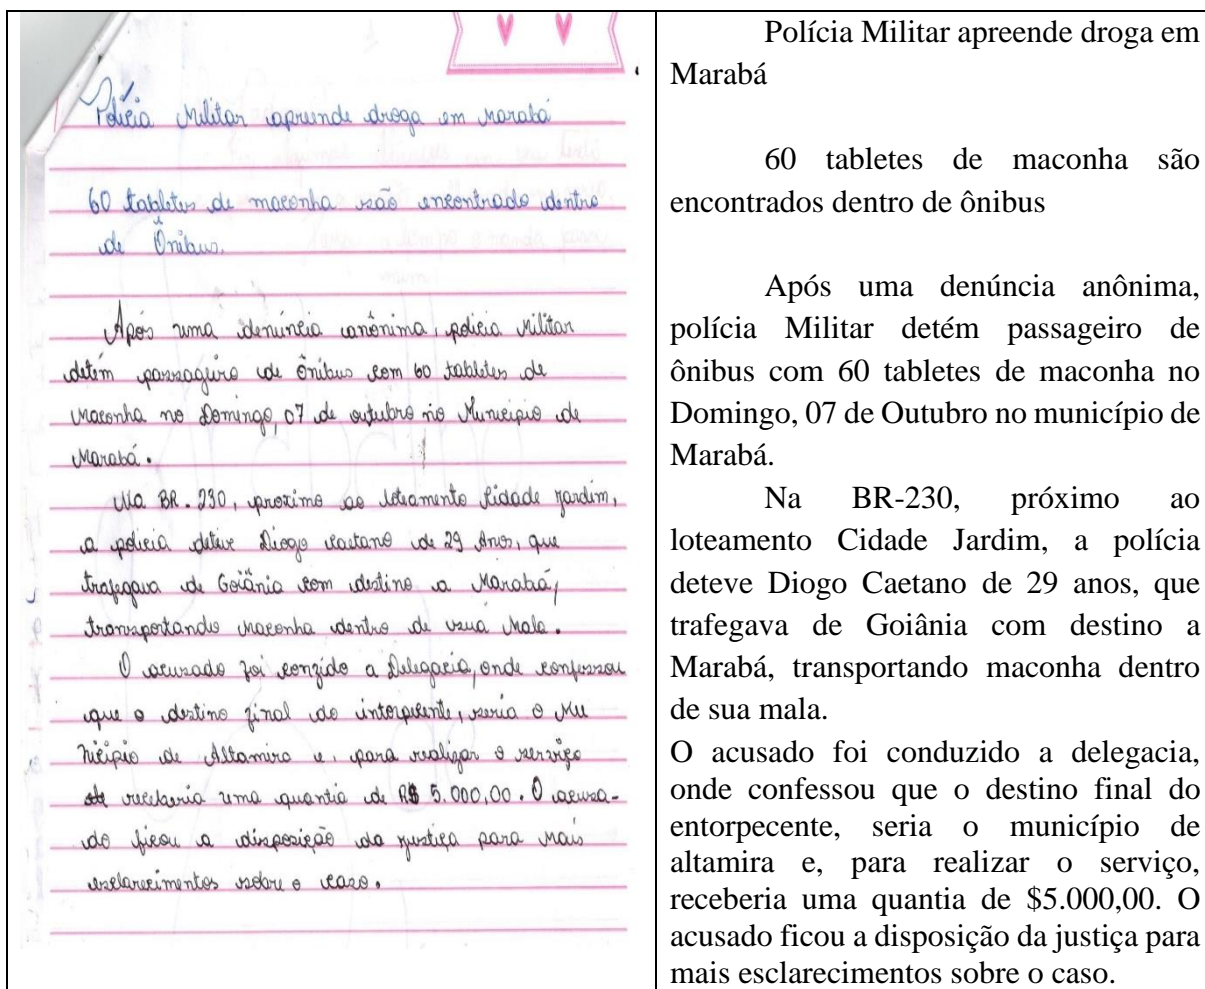 Polícia Militar apreende droga em Marabá
60 tabletes de maconha são encontrado dentro
de Ônibus.
Após uma denúncia anônima, policia Militar
detém passageiro de Ônibus com 60 tabletes de
Maconha no Domingo, 07 de outubro no Município de
Marabá.
Na BR-230, proximo ao loteamento Cidade Jardim,
a policia deteve Diogo Caetano de 29 Anos, que
trafegava de Goiânia com destino a Marabá,
transportando Maconha dentro de sua Mala.
O acusado foi conzido a Delegacia, onde confessou
que o destino final do intorpecente, seria o Mu
nicípio de Altamira e, para realizar o serviço
receberia uma quantia de R$ 5.000,00. O acusa-
do ficou a disposição da justiça para Mais
esclarecimentos sobre o caso.
Polícia Militar apreende droga em
Marabá
60 tabletes de maconha são
encontrados dentro de ônibus
Após uma denúncia anônima,
polícia Militar detém passageiro de
ônibus com 60 tabletes de maconha no
Domingo, 07 de Outubro no município de
Marabá.
Na BR-230, próximo ao
loteamento Cidade Jardim, a polícia
deteve Diogo Caetano de 29 anos, que
trafegava de Goiânia com destino a
Marabá, transportando maconha dentro
de sua mala.
O acusado foi conduzido a delegacia,
onde confessou que o destino final do
entorpecente, seria o município de
altamira e, para realizar o serviço,
receberia uma quantia de $5.000,00. O
acusado ficou a disposição da justiça para
mais esclarecimentos sobre o caso.